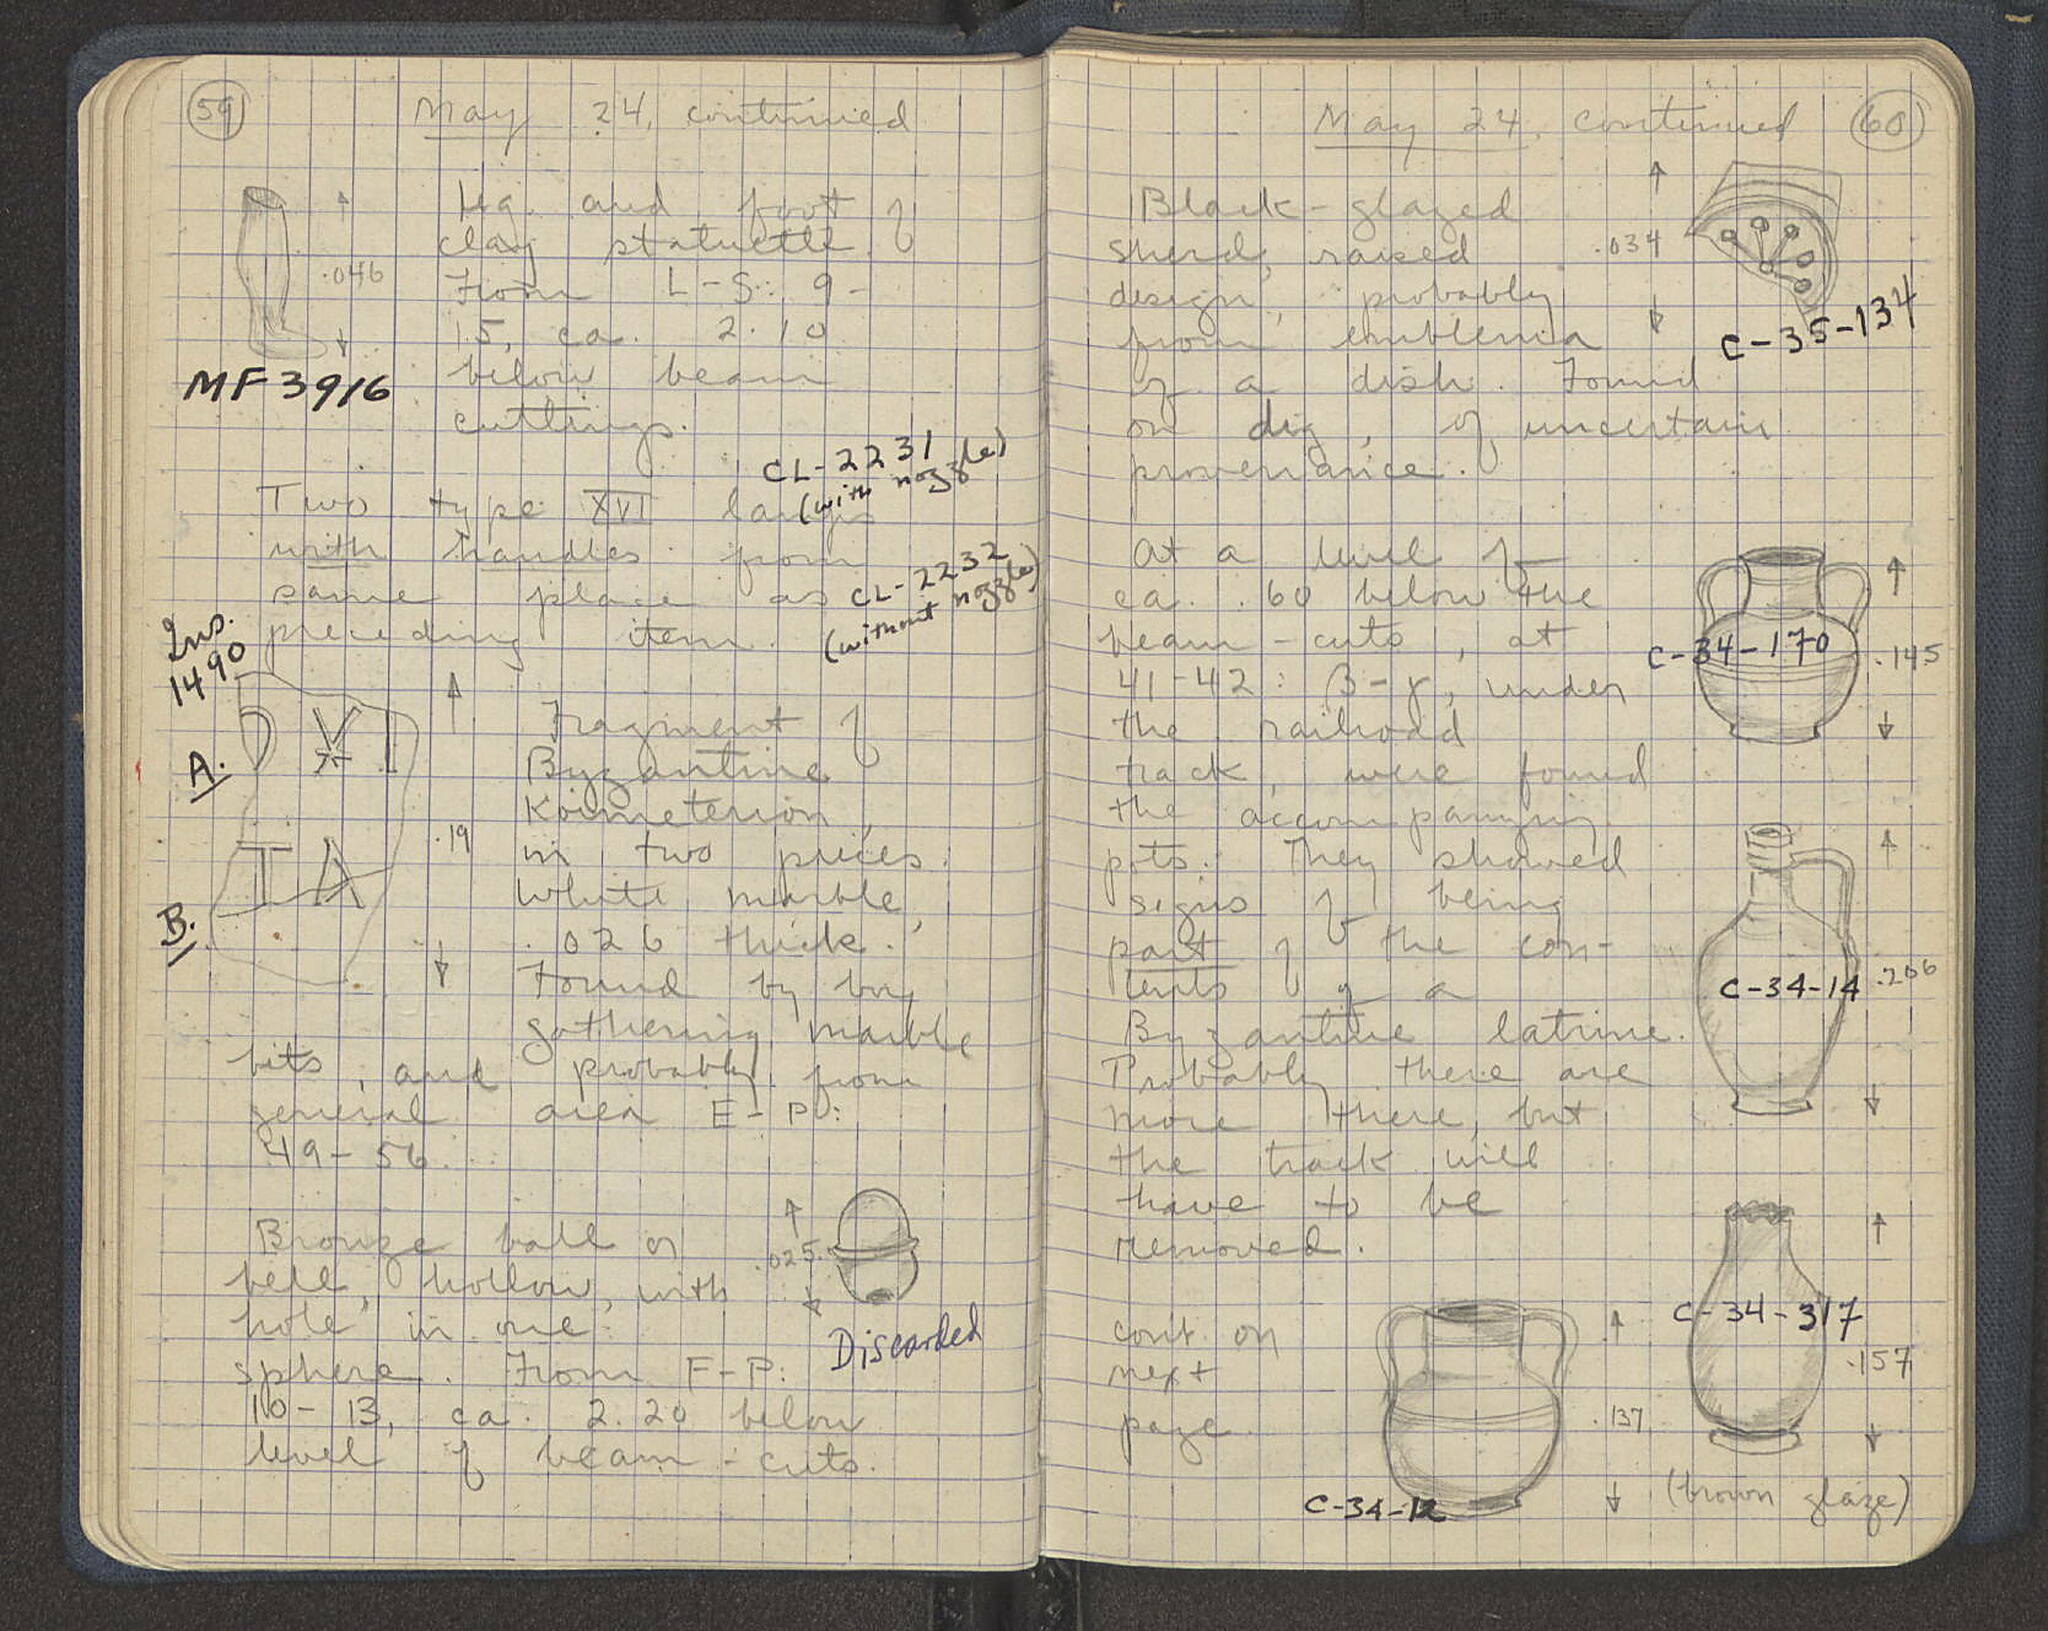 59
May 24, continued
Leg and foot of
clay statuette.
.046
From L-S: 9-
15, ca. 2.10
below beam
MF 3916
cuttings.
CL-2231
(with nozzle)
Two type XVI lamps
with handles from
same place as
CL-2232
(without nozzle)
preceding item.
Ins.
1490
Fragment of
A.
Byzantine
Koimeterion,
.19
in two pieces.
ΤΑ
White marble,
B.
.026 thick.
Found by boy
gathering marble
bits, and probably from
general area E-P:
49-56.
Bronze ball or
.025
bell, hollow, with
hole in one
Discarded
sphere. From F-P:
10-13, ca. 2.20 below
level of beam-cuts.
May 24, continued
60
Black-glazed
sherd, raised
.034
design, probably
from emblema
C-35-134
of a dish. Found
on dig, of uncertain
provenance.
At a level of
ca. .60 below the
beam-cuts, at
C-34-170
.145
41-42: Β-γ, under
the railroad
track, were found
the accompanying
pots. They showed
signs of being
part of the con-
tents of a
C-34-14
.206
Byzantine latrine.
Probably there are
more there, but
the track will
have to be
removed.
C-34-317
cont. on
.157
next
page
.137
(brown glaze)
C-34-12